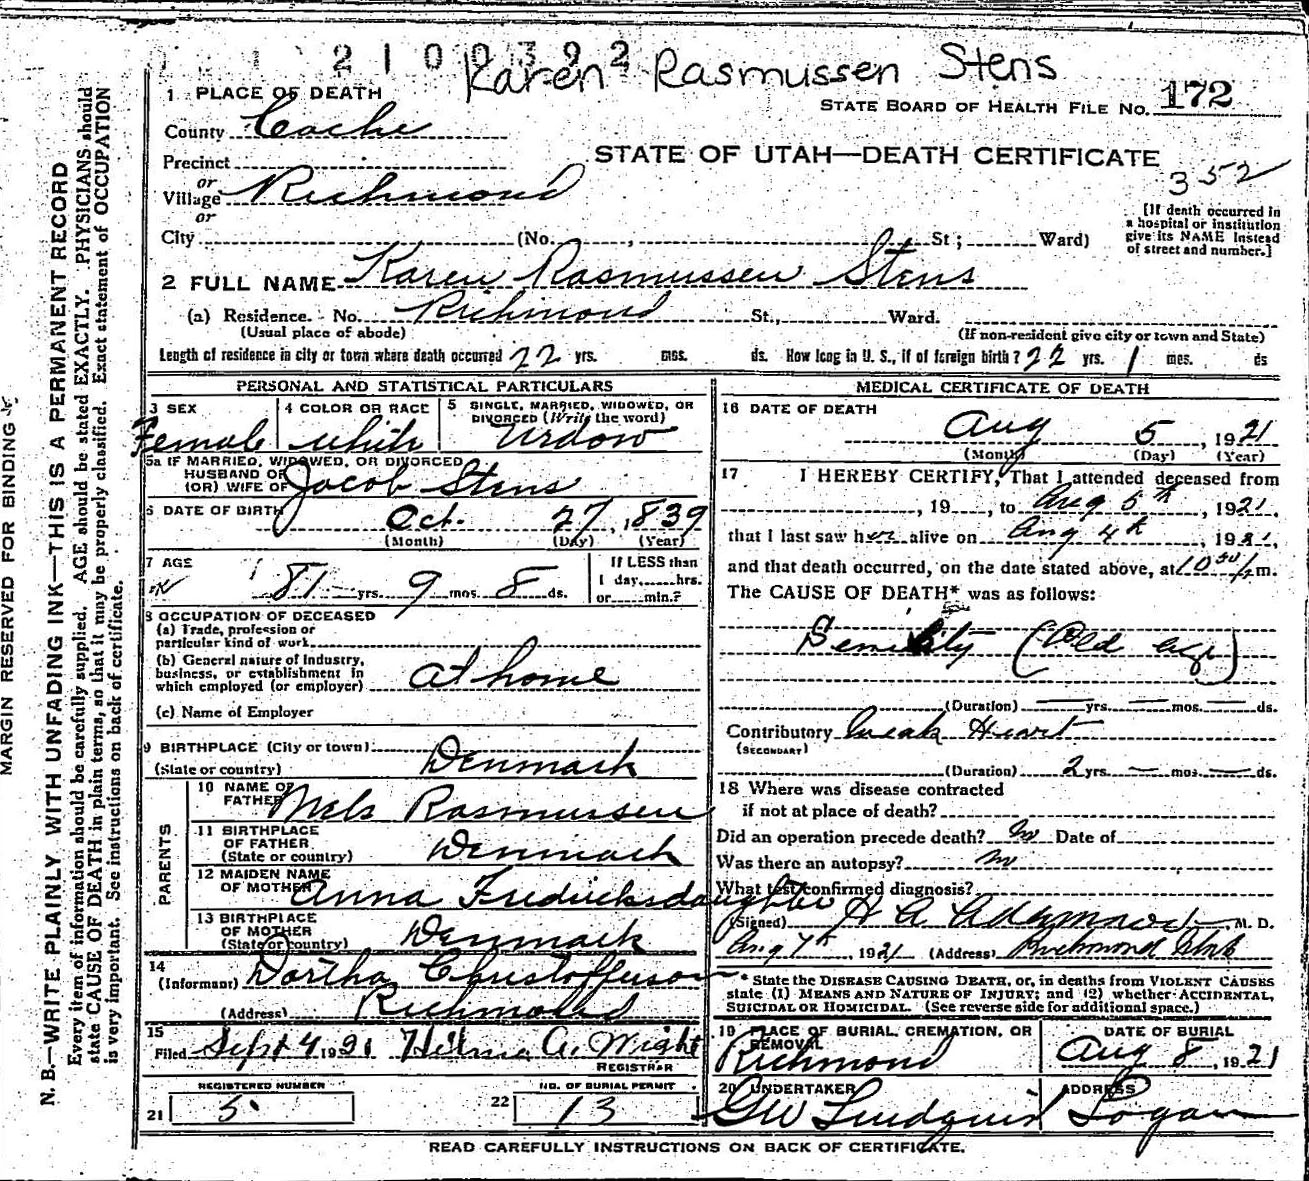 2100392
Karen Rasmussen Stens
1 PLACE OF DEATH
STATE BOARD OF HEALTH FILE NO. 172
County Cache
STATE OF UTAH—DEATH CERTIFICATE
352
Precinct
or
Village Richmond
or
City (No. , St; Ward)
[If death occurred in
a hospital or institution
give its NAME instead
of street and number.]
2 FULL NAME Karen Rasmussen Stens
(a) Residence. No. Richmond St., Ward.
(Usual place of abode) (If non-resident give city or town and State)
Length of residence in city or town where death occurred 22 yrs. mos. ds. How long in U. S., if of foreign birth? 22 yrs. 1 mos. ds
PERSONAL AND STATISTICAL PARTICULARS
3 SEX
Female
4 COLOR OR RACE
White
5 SINGLE, MARRIED, WIDOWED, OR
DIVORCED (Write the word)
Widow
5a IF MARRIED, WIDOWED, OR DIVORCED
HUSBAND OF
(OR) WIFE OF Jacob Stens
6 DATE OF BIRTH Oct. 27, 1839
(Month) (Day) (Year)
7 AGE
81 yrs. 9 mos. 8 ds.
If LESS than
1 day, hrs.
or min.?
8 OCCUPATION OF DECEASED
(a) Trade, profession or
particular kind of work
(b) General nature of Industry,
business, or establishment in
which employed (or employer) at home
(c) Name of Employer
9 BIRTHPLACE (City or town)
(State or country) Denmark
PARENTS
10 NAME OF
FATHER Nels Rasmussen
11 BIRTHPLACE
OF FATHER
(State or country) Denmark
12 MAIDEN NAME
OF MOTHER Anna Fredricksdaughter
13 BIRTHPLACE
OF MOTHER
(State or country) Denmark
14
(Informant) Dortha Christofferson
(Address) Richmond
15
Filed Sept 4 1921 Hilma A. Wight
REGISTRAR
REGISTERED NUMBER
21 5.
NO. OF BURIAL PERMIT
22 13
MEDICAL CERTIFICATE OF DEATH
16 DATE OF DEATH
Aug 5, 1921
(Month) (Day) (Year)
17 I HEREBY CERTIFY, That I attended deceased from
, 19 , to Aug 5th, 1921,
that I last saw her alive on Aug 4th, 1921,
and that death occurred, on the date stated above, at m.
The CAUSE OF DEATH* was as follows:
Senility (Old age)
(Duration) yrs. mos. ds.
Contributory Weak Heart
(SECONDARY)
(Duration) 2 yrs. — mos. — ds.
18 Where was disease contracted
if not at place of death?
Did an operation precede death? no Date of
Was there an autopsy? no
What test confirmed diagnosis?
(Signed) H A Adamson M. D.
Aug 7th 1921 (Address) Richmond Utah
* State the DISEASE CAUSING DEATH, or, in deaths from VIOLENT CAUSES
state (1) MEANS AND NATURE OF INJURY; and (2) whether ACCIDENTAL,
SUICIDAL OR HOMICIDAL. (See reverse side for additional space.)
19 PLACE OF BURIAL, CREMATION, OR
REMOVAL
Richmond
DATE OF BURIAL
Aug 8, 1921
20 UNDERTAKER
GW Lindquist
ADDRESS
Logan
READ CAREFULLY INSTRUCTIONS ON BACK OF CERTIFICATE.
MARGIN RESERVED FOR BINDING
N. B.—WRITE PLAINLY WITH UNFADING INK—THIS IS A PERMANENT RECORD
Every item of information should be carefully supplied. AGE should be stated EXACTLY. PHYSICIANS should
state CAUSE OF DEATH in plain terms, so that it may be properly classified. Exact statement of OCCUPATION
is very important. See instructions on back of certificate.